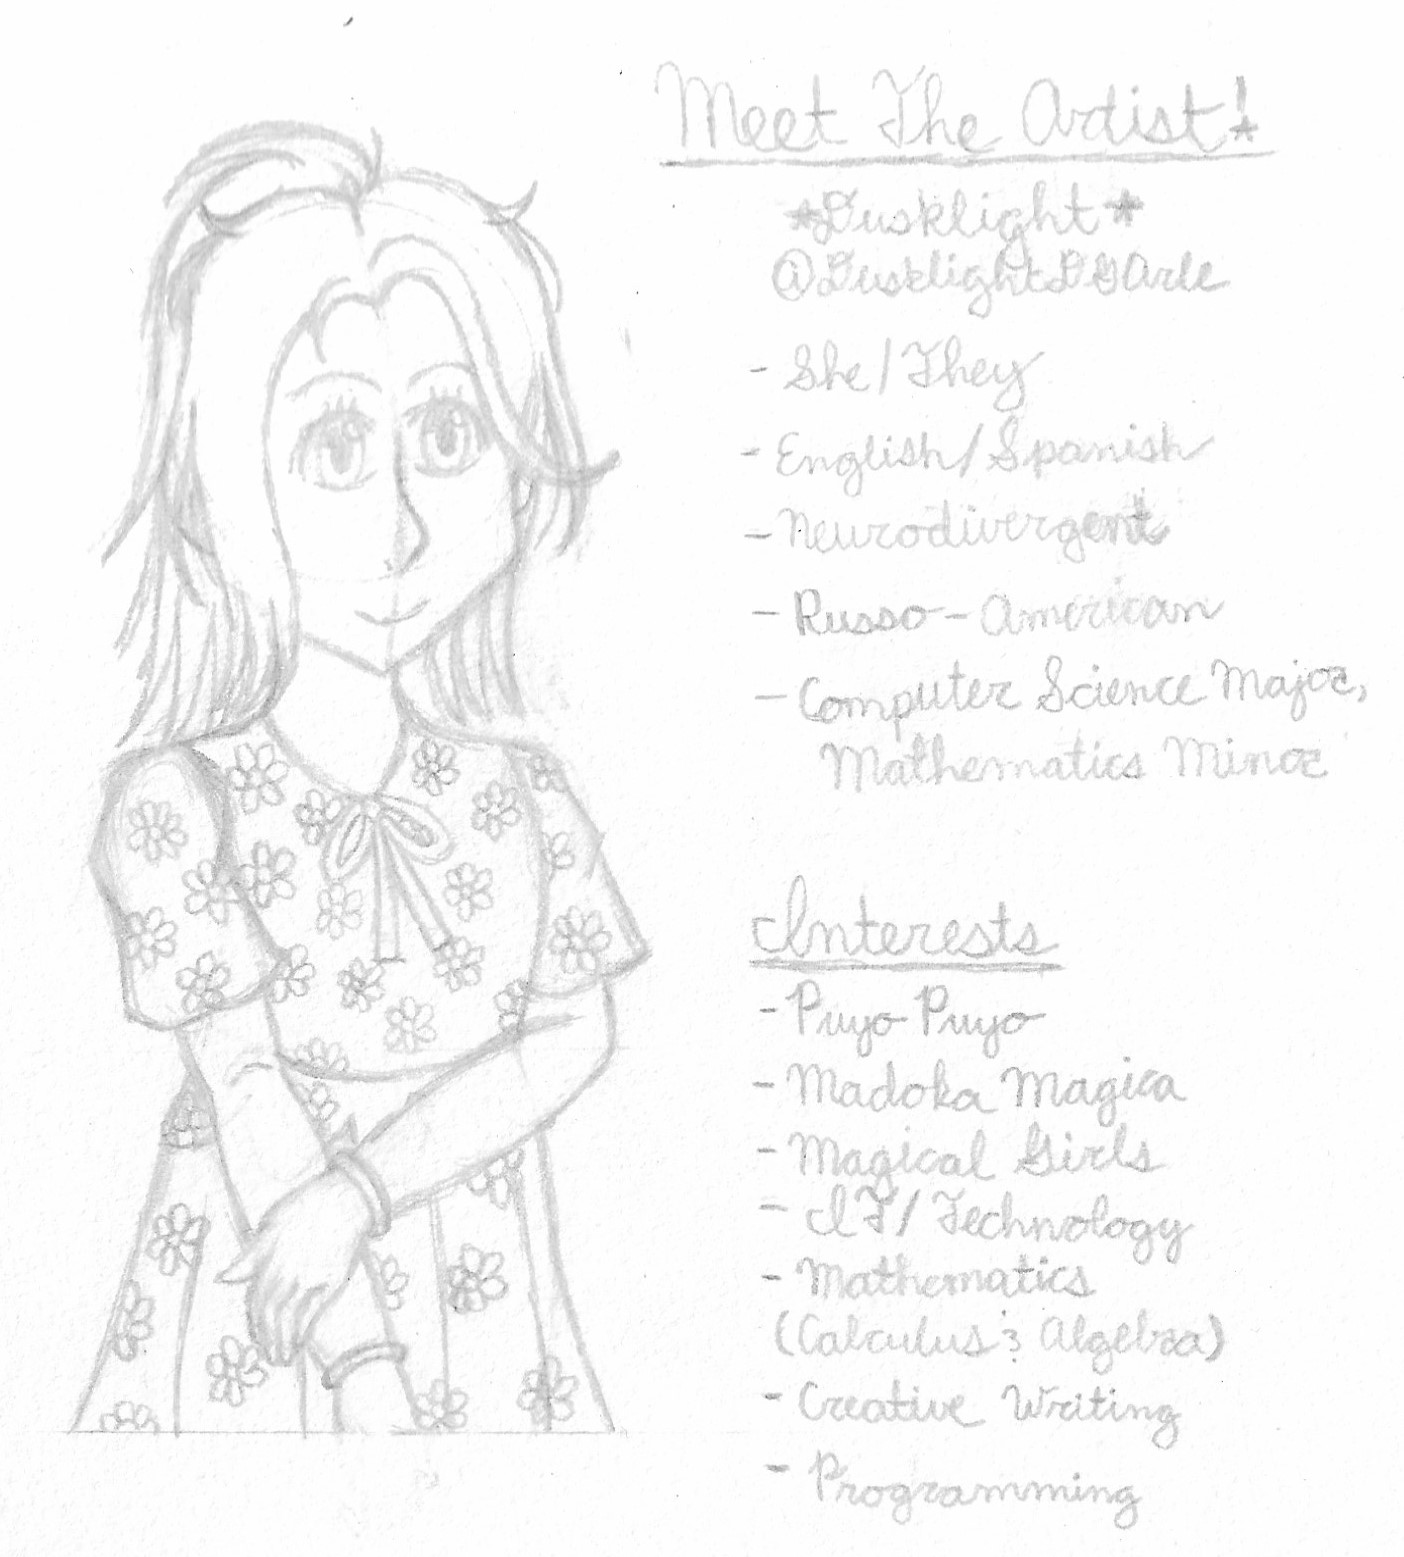 Meet The Artist!
*Dusklight*
@DusklightDGArle
- She/They
- English/Spanish
- Neurodivergent
- Russo-American
- Computer Science Major,
Mathematics Minor
Interests
- Puyo Puyo
- Madoka Magica
- Magical Girls
- IT/Technology
- Mathematics
(Calculus & Algebra)
- Creative Writing
- Programming